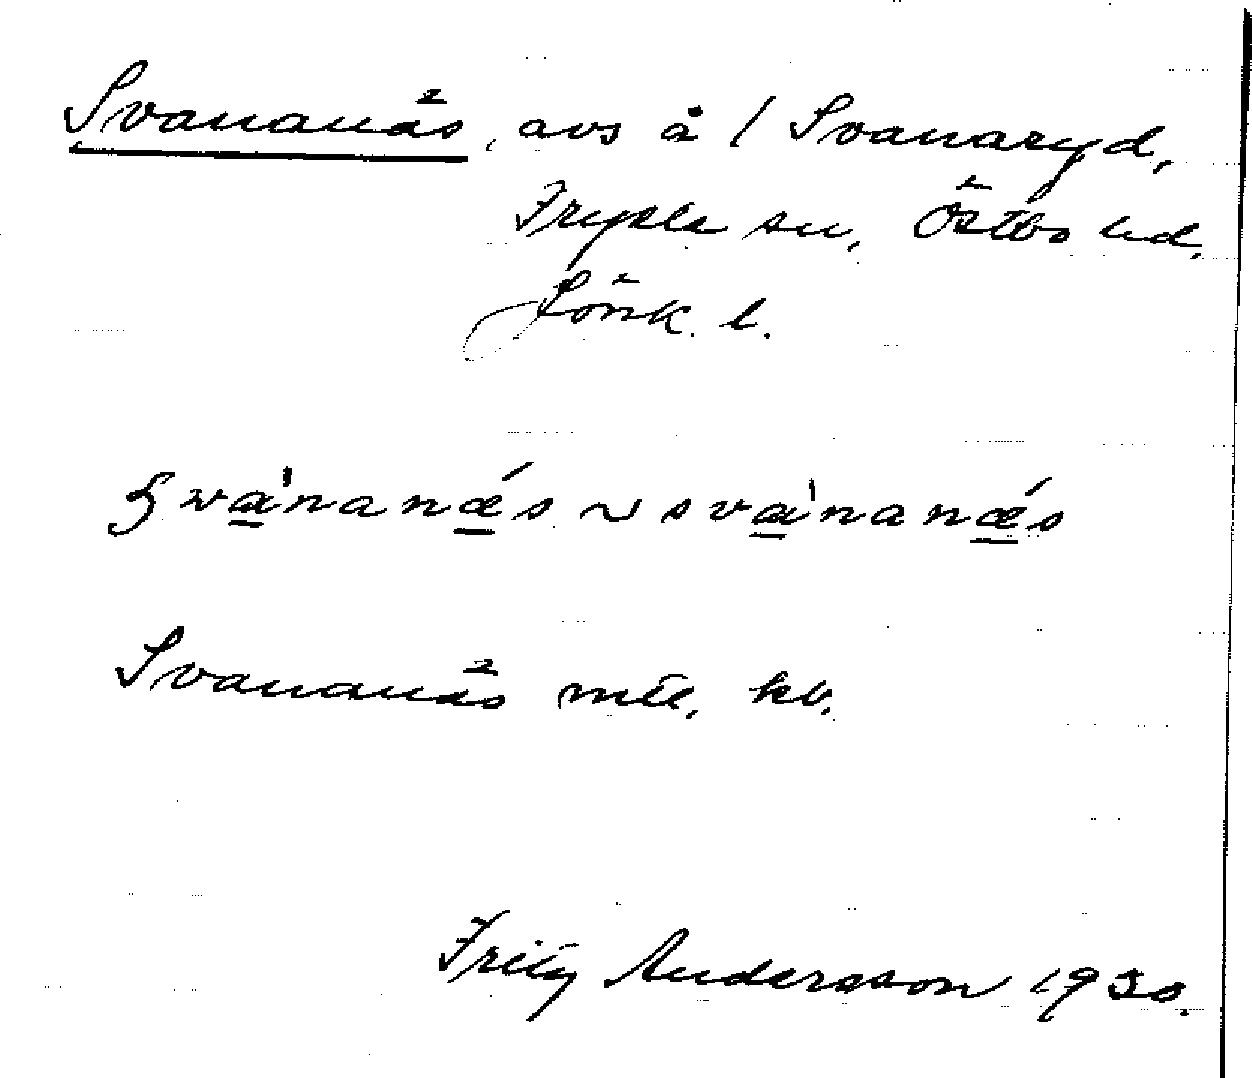 Svananäs, avs å / Svanaryd,
Fryele sn, Östbo hd,
Jönk. l.
sva̲̍nanǽ̲s ~ sva̲̍nanǽ̲s
Svananäs mtl. kb.
Fritz Andersson 1930.